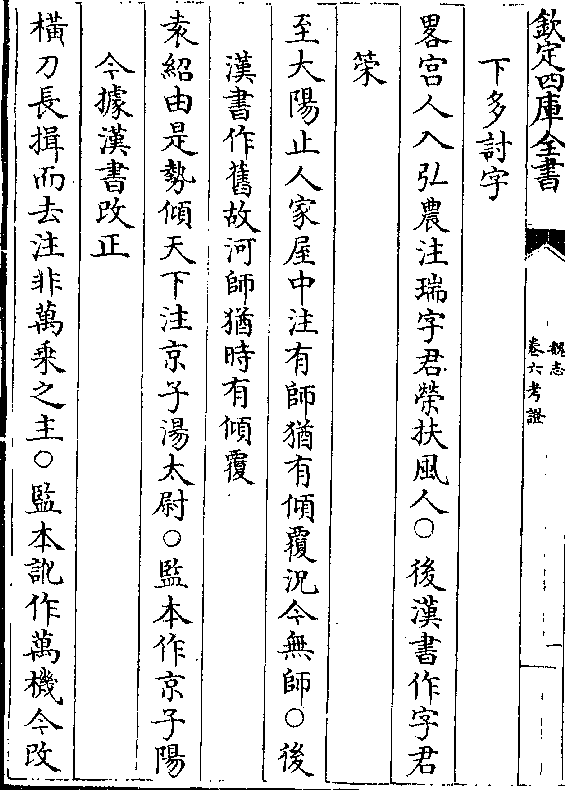 欽定四庫全書
魏志
卷六考證
一
下多討字
畧宫人入弘農注瑞字君榮扶風人○後漢書作字君
榮
至大陽止人家屋中注有師猶有傾覆況今無師○後
漢書作舊故河師猶時有傾覆
袁紹由是勢傾天下注京子湯太尉○監本作京子陽
今據漢書改正
橫刀長揖而去注非萬乘之主○監本訛作萬機今改